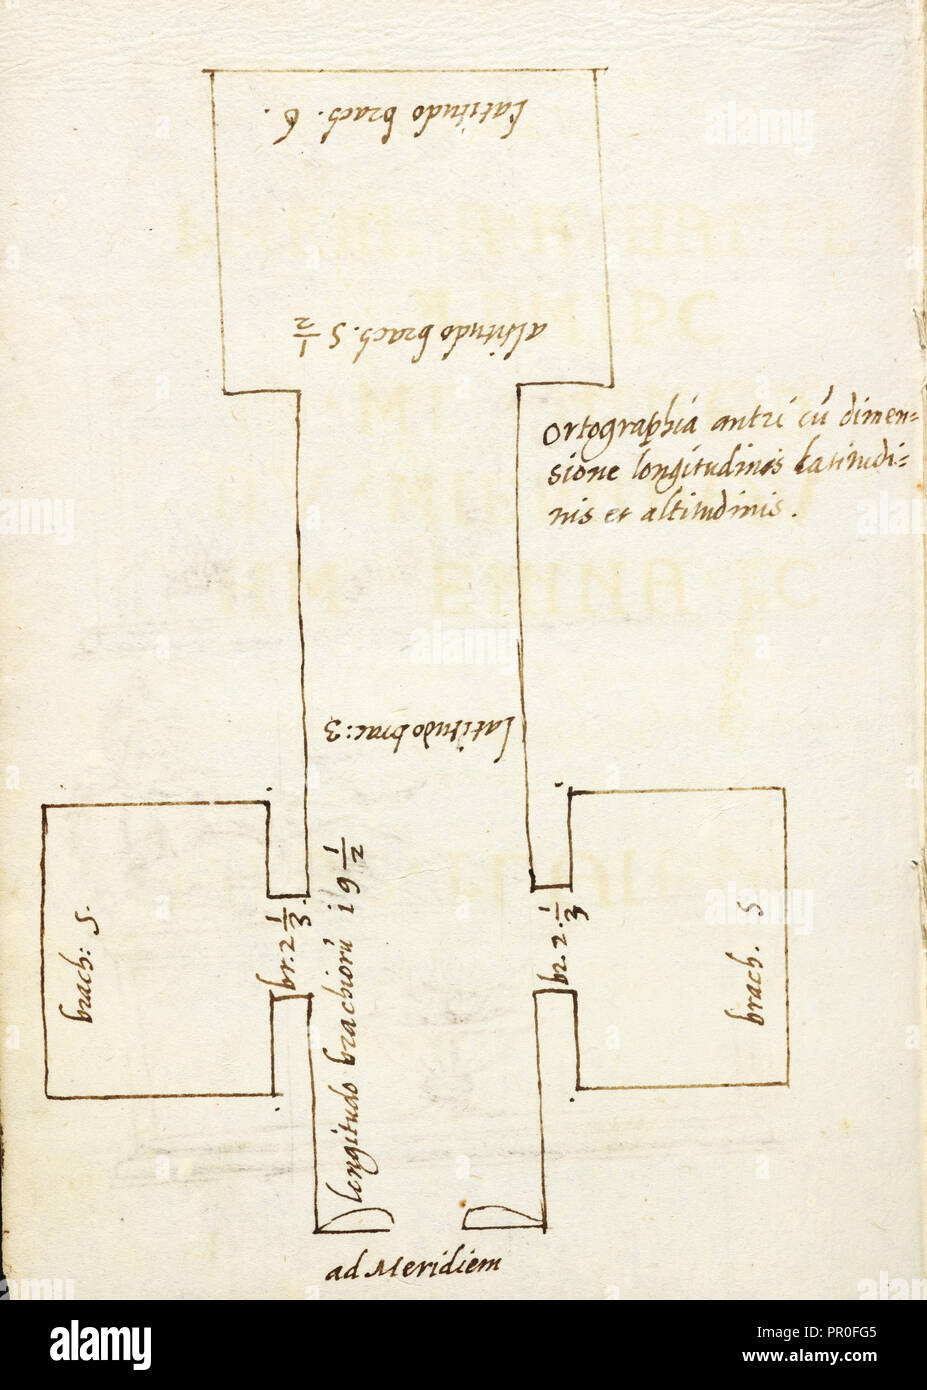 latitudo brach. 6.
altitudo brach. 5 1/2
ortographia antri cū dimen=
sione longitudinis latitudi=
nis et altitudinis.
latitudo brac: 3
brach: 5.
br. 2 1/3.
longitudo brachiorū i9 1/2
br. 2. 1/3
brach. 5
ad Meridiem
alamy
alamy
alamy
alamy
Image ID: PR0FG5
www.alamy.com